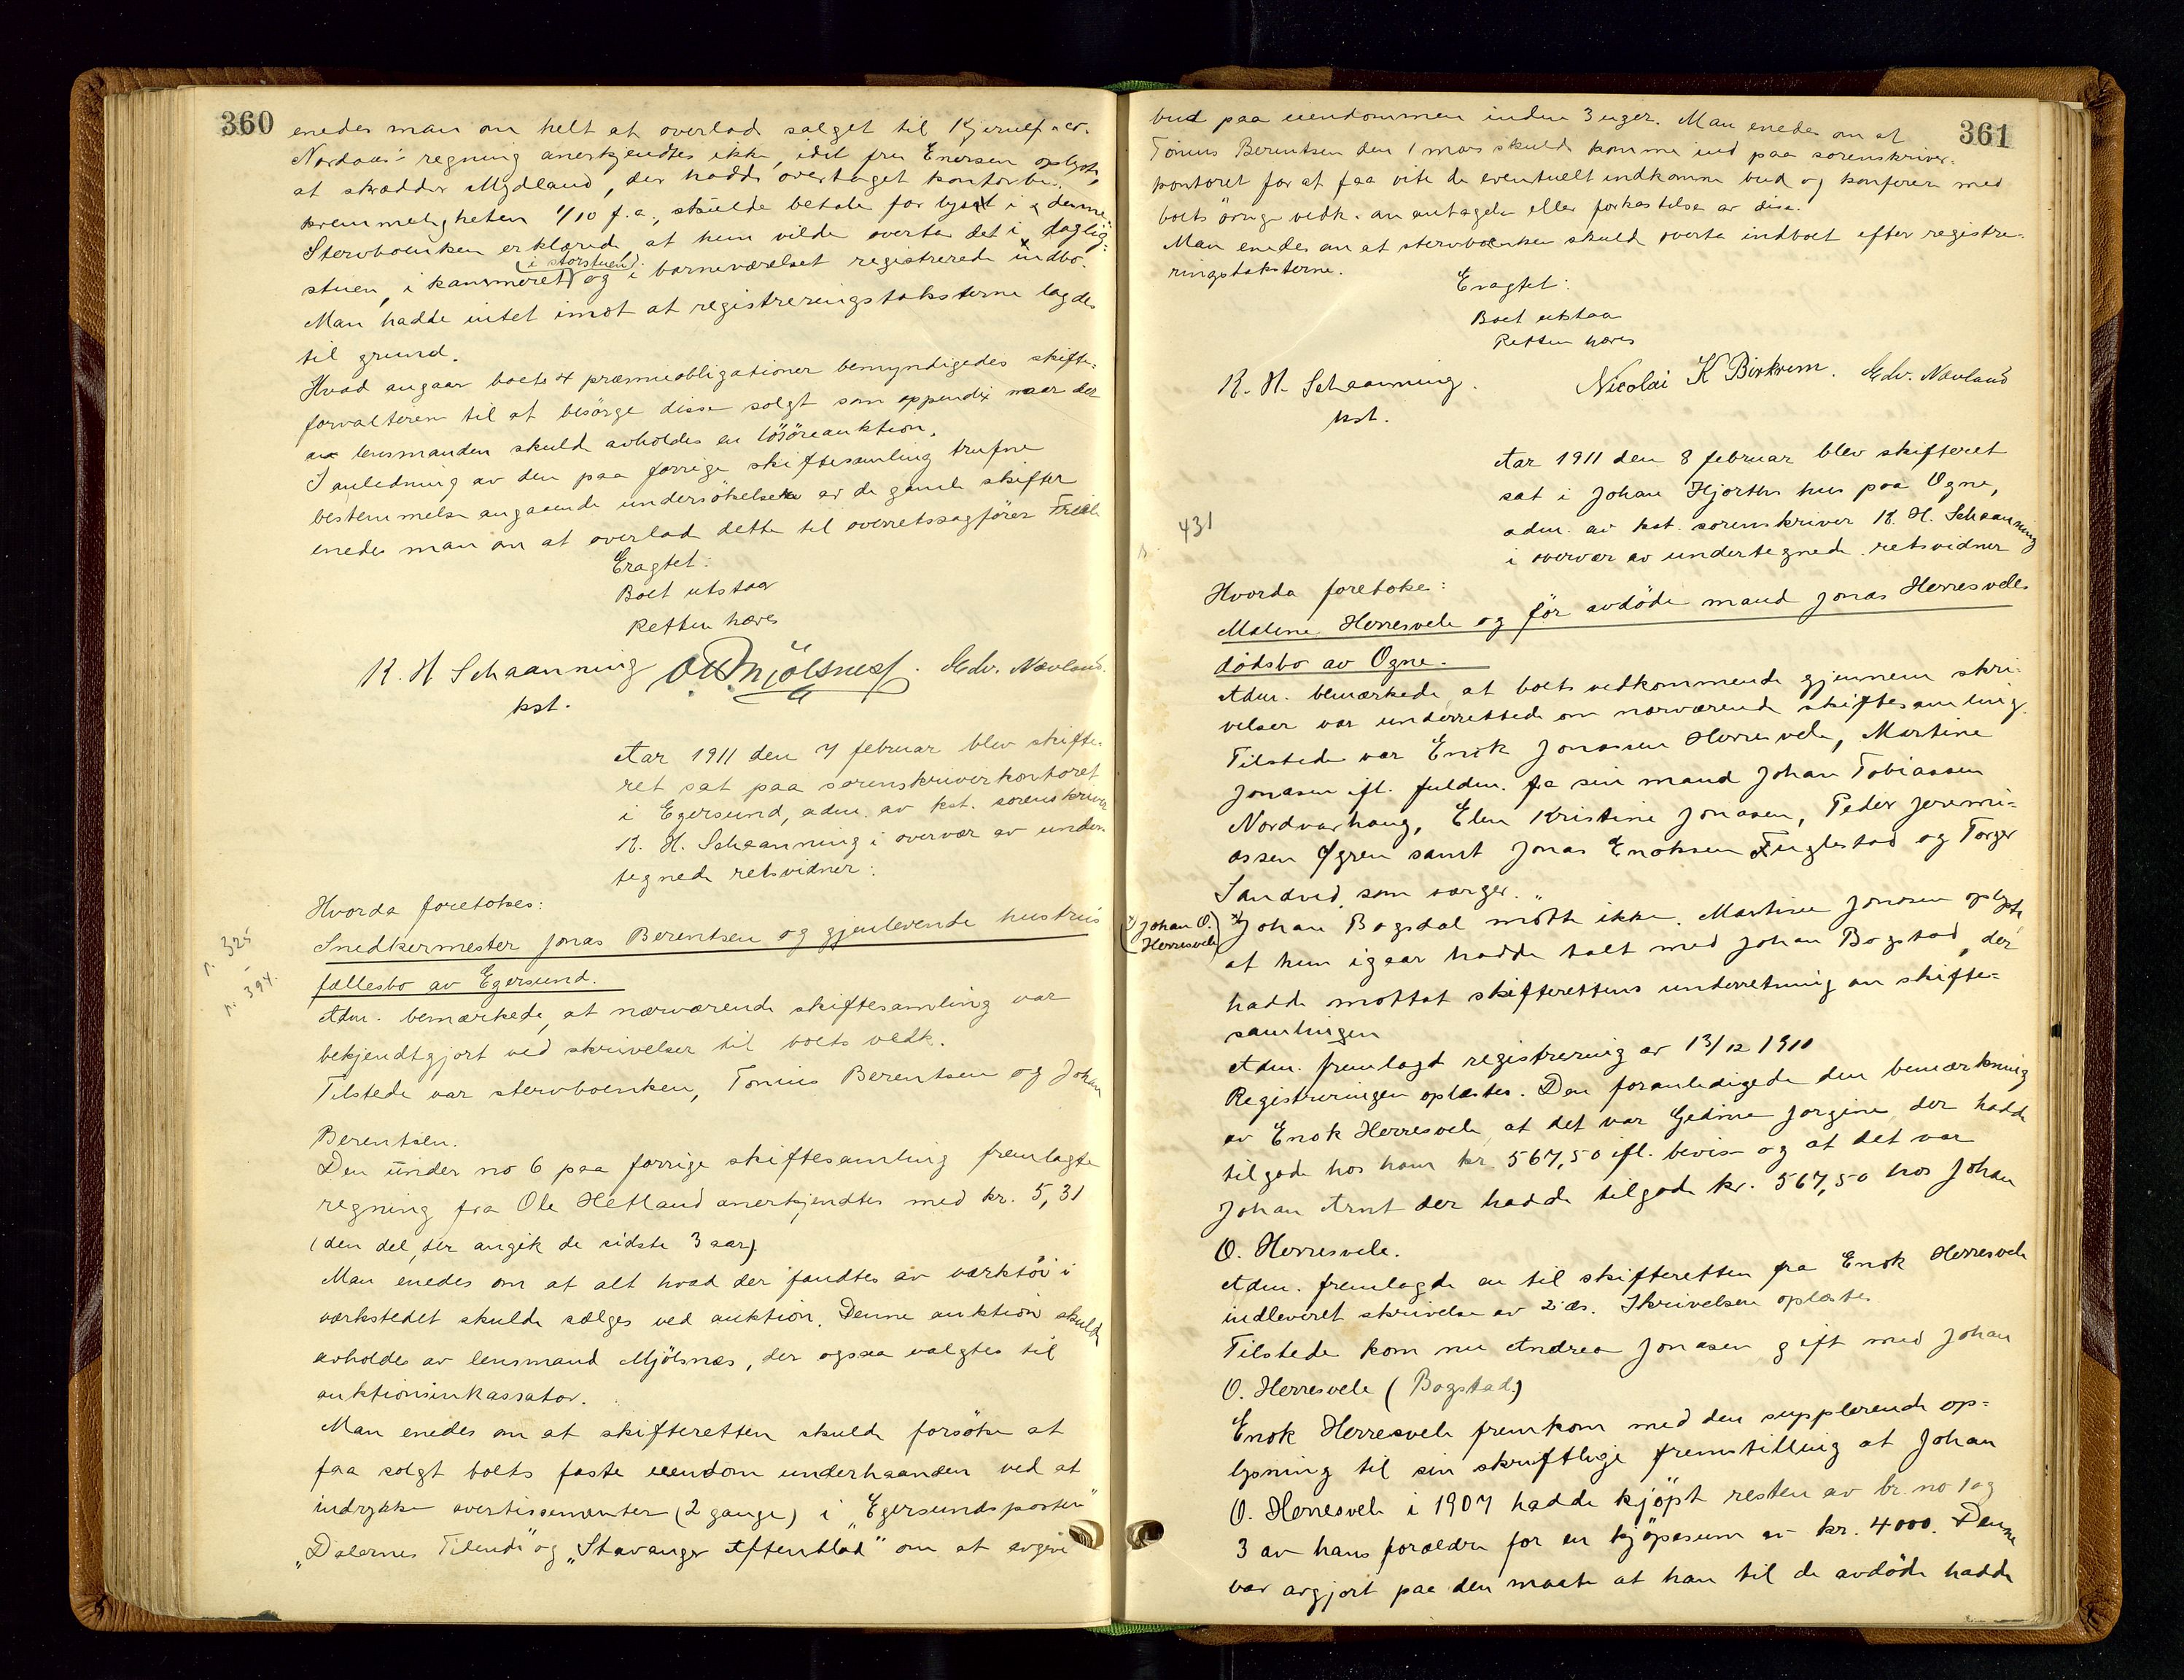 360
enedes man om helt at overlad salget til Kjerulf &co.
Nordaas' regning anerkjendtes ikke, idet fru Enersen oplyste,
at skrædder Mydland, der hadde overtaget kontorbe-
kvemmeligheten 1/10 f.a., skulde betale for lyset i denne.
Stervboenken erklærede at hun vilde overta det i daglig-
stuen, i kammeret (i storstuen) og i barneværelset registrerede indbo.
Man hadde intet imot at registreringstaksterne lagdes
til grund.
Hvad angaar boets 4 præmieobligationer bemyndigedes skifte-
forvalteren til at besörge disse solgt som appendix naar der
av lensmanden skuld avholdes en lösöreauktion.
I anledning av den paa forrige skiftesamling trufne
bestemmelse angaaende undersökelsen av de gamle skifter
enedes man om at overlad dette til overretssagförer
Eragtet:
Boet utstaar
Retten hæves
K. H Schaanning Mjölsnes. Edv. Nævland.
kst.
Aar 1911 den 7 februar blev skifte-
ret sat paa sorenskriverkontoret
i Egersund, adm. av kst. sorenskriver
K. H. Schaanning i overvær av under-
tegnede retsvidner:
Hvorda foretokes:
r. 325
r. 394.
Snedkermester Jonas Berentsen og gjenlevende hustrus
fællesbo av Egersund.
Adm. bemærkede, at nærværende skiftesamling var
bekjendtgjort ved skrivelser til boets vedk.
Tilstede var stervboenken, Tonius Berentsen og Johan
Berentsen.
Den under no 6 paa forrige skiftesamling fremlagte
regning fra Ole Hetland anerkjendtes med kr. 5,31
(den del, der angik de sidste 3 aar).
Man enedes om at alt hvad der fandtes av værktöi i
værkstedet skulde sælges ved auktion. Denne auktion skulde
avholdes av lensmand Mjölsnes, der ogsaa valgtes til
auktionsinkassator.
Man enedes om at skifteretten skulde forsöke at
faa solgt boets faste eiendom underhaanden ved at
indrykke avertissementer (2 gange) i "Egersundsposten"
"Dalernes Tidende" og "Stavanger Aftenblad" om at avgive
361
bud paa eiendommen inden 3 uger. Man enedes om at
Tönius Berentsen den 1 mars skulde komme ind paa sorenskriver-
kontoret for at faa vite de eventuelt indkomne bud og konferere med
boets övrige vedk. om antagelse eller forkastelse av disse.
Man enedes om at stervboenken skuld overta indboet efter registre-
ringstaksterne.
Eragtet:
Boet utstaar
Retten hæves
K. H. Schaanning. Nicolai K Birkrem. Edv. Nævland
kst.
Aar 1911 den 8 februar blev skifteret
sat i Johan Hjorths hus paa Ogne,
adm. av kst. sorenskriver K. H. Schaanning
i overvær av undertegnede retsvidner
431
Hvorda foretokes:
Malene Herresvele og för avdöde mand Jonas Herresveles
dödsbo av Ogne.
Adm. bemærkede, at boets vedkommende gjennem skri-
velser var underrettede om nærværende skiftesamling.
Tilstede var Enok Jonassen Herresvele, Martine
Jonasen ifl. fuldm. fra sin mand Johan Tobiassen
Nordvarhaug, Elen Kristine Jonasen, Peder Jeremi-
assen Ogren samt Jonas Enoksen Fuglestad og Torger
Sandved som værger.
x) Johan O. Herresvele)
x) Johan Bogsdal mötte ikke. Martine Jonasen oplyste
at hun igaar hadde talt med Johan Bogstad, der
hadde mottat skifterettens underretning om skifte-
samlingen
Adm. fremlagd registrering av 13/12 1910
Registreringen oplæstes. Den foranledigede den bemærkning
av Enok Herresvele at det var Gedine Jorgine der hadde
tilgode hos ham kr. 567,50 ifl. bevis og at det var
Johan Arnt der hadde tilgode kr. 567,50 hos Johan
O. Herresvele.
Adm. fremlagde en til skifteretten fra Enok Herresvele
indleveret skrivelse av 2 ds. Skrivelsen oplæstes.
Tilstede kom nu Andrea Jonasen gift med Johan
O. Herresvele (Bogstad)
Enok Herresvele fremkom med den supplerende op-
lysning til sin skriftlige fremstilling at Johan
O. Herresvele i 1907 hadde kjöpt resten av br. no 1 og
3 av hans forældre for en kjöpesum av kr. 4000. Denne
var avgjort paa den maate at han til de avdöde hadde